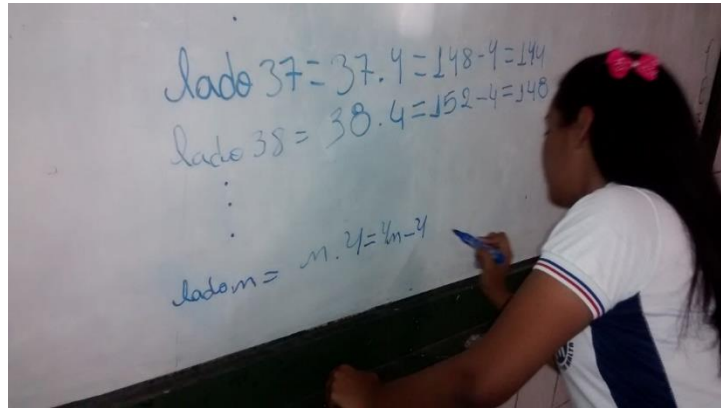 lado 37 = 37 . 4 = 148 - 4 = 144
lado 38 = 38 . 4 = 152 - 4 = 148
lado n = n . 4 = 4n - 4